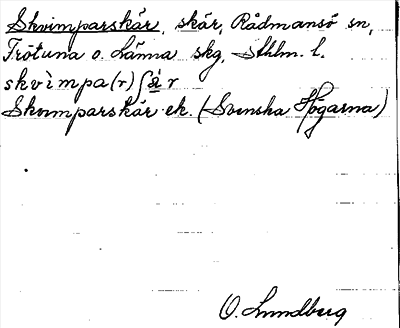 Skvimparskär, skär, Rådmansö sn,
Frötuna o. Länna skg, Sthlm. l.
skvìmpa(r)ʃä̀r
Skvimparskär ek. (Svenska Högarna)
O. Lundberg